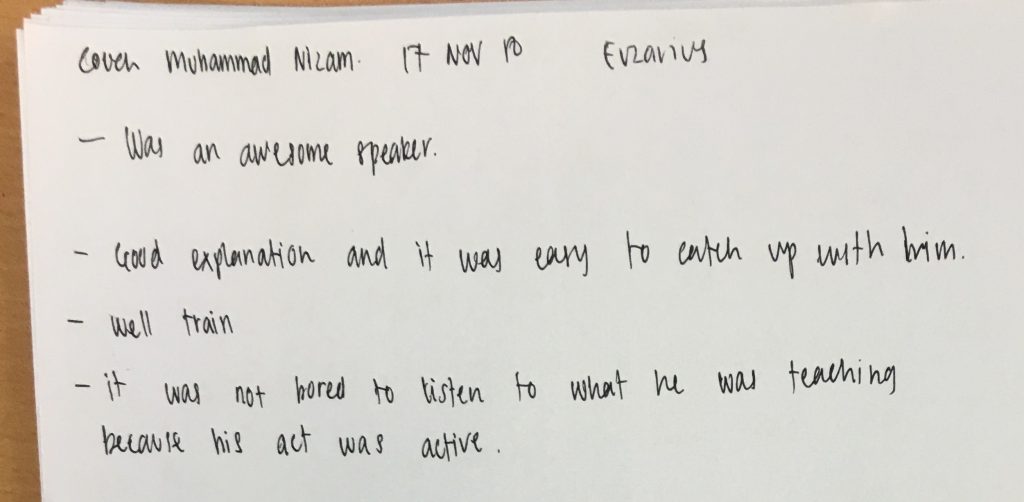 Muhammad Nizam. 17 NOV Evzarius
- Was an awesome speaker.
- Good explanation and it was easy to catch up with him.
- well train
- it was not bored to listen to what he was teaching
because his act was active.